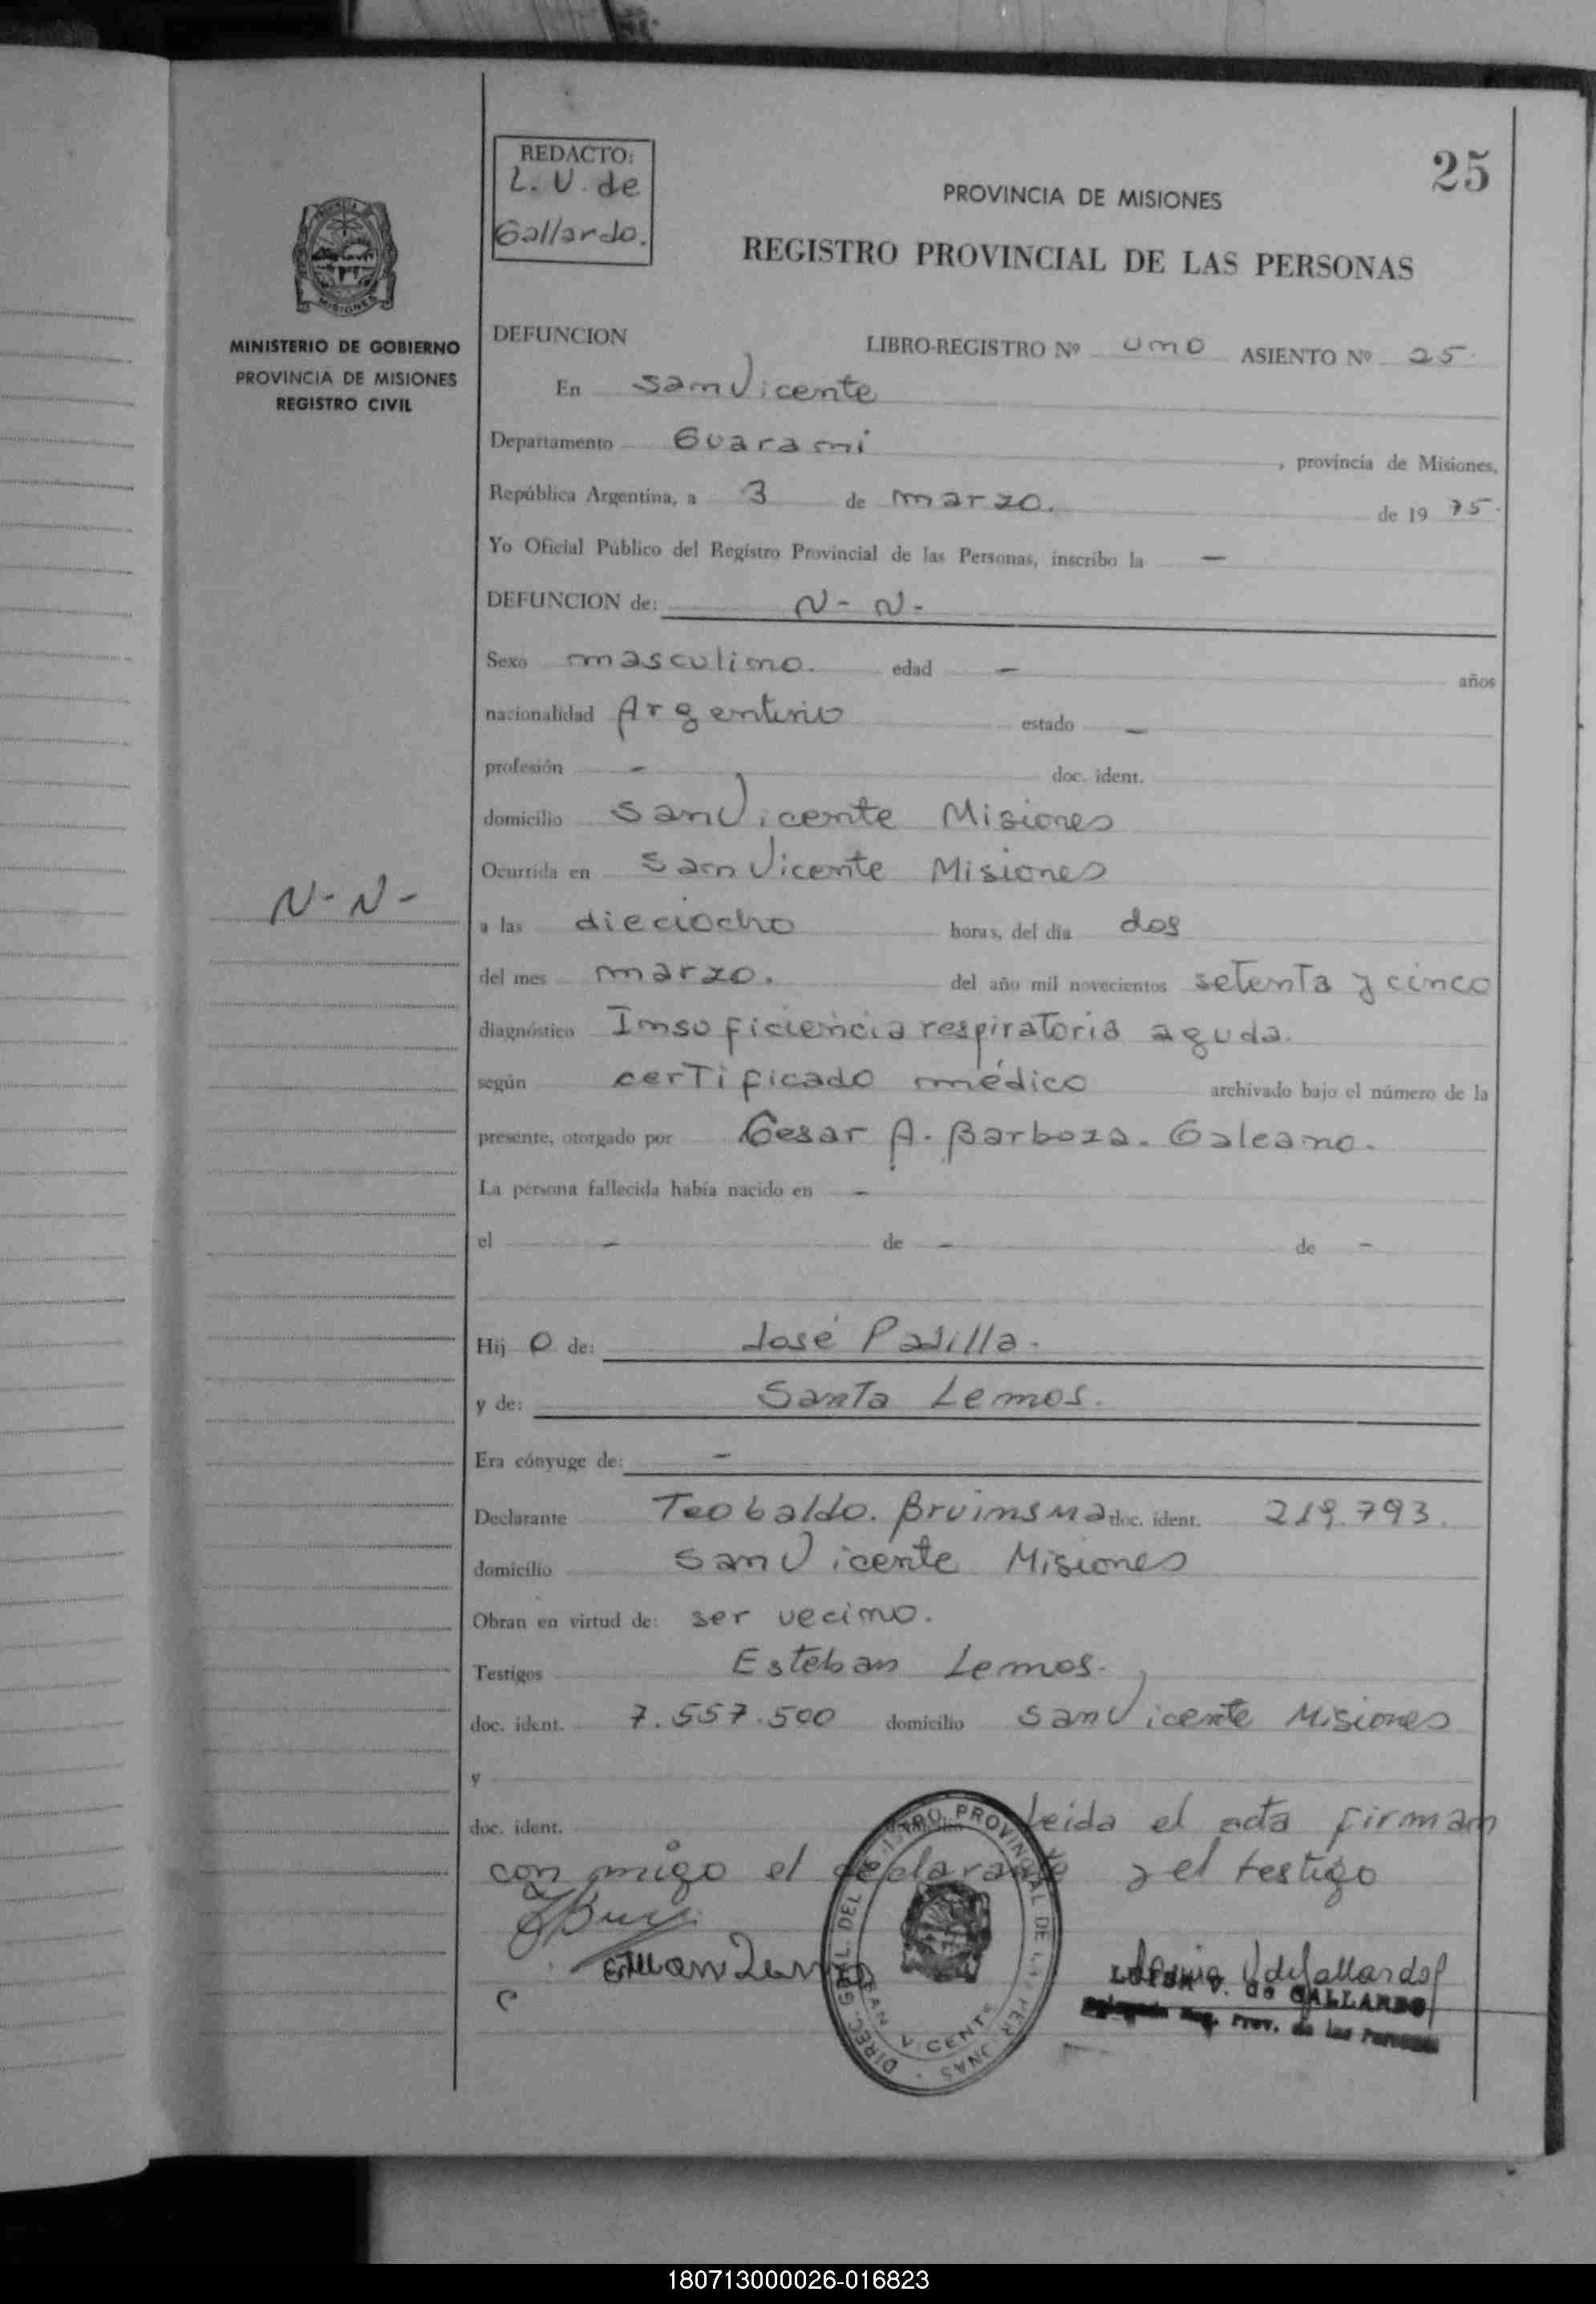 25
REDACTO:
L. V. de
Gallardo.
PROVINCIA DE MISIONES
REGISTRO PROVINCIAL DE LAS PERSONAS
MINISTERIO DE GOBIERNO
PROVINCIA DE MISIONES
REGISTRO CIVIL
DEFUNCION LIBRO-REGISTRO Nº uno ASIENTO Nº 25.
En San Vicente
Departamento Guarani , provincia de Misiones,
República Argentina, a 3 de marzo. de 19 75.
Yo Oficial Público del Registro Provincial de las Personas, inscribo la —
DEFUNCION de: N- N-
Sexo masculino. edad — años
nacionalidad Argentino estado —
profesión — doc. ident.
domicilio San Vicente Misiones
Ocurrida en San Vicente Misiones
N-N-
a las dieciocho horas, del día dos
del mes marzo. del año mil novecientos setenta y cinco
diagnóstico Insuficiencia respiratoria aguda.
según certificado médico archivado bajo el número de la
presente, otorgado por Cesar A. Barboza. Galeano.
La persona fallecida había nacido en —
el — de — de —
Hij o de: José Padilla.
y de: Santa Lemos.
Era cónyuge de: —
Declarante Teobaldo. Bruinsma doc. ident. 219.793.
domicilio San Vicente Misiones
Obran en virtud de: ser vecino.
Testigos Esteban Lemos.
doc. ident. 7.557.500 domicilio San Vicente Misiones
y
doc. ident. Leida el acta firman
con migo el declarante y el testigo
DIREC. GRAL. DEL REGISTRO PROVINCIAL DE LAS PERSONAS
SAN VICENTE
LUISA V. de GALLARDO
Reg. Prov. de las Personas
180713000026-016823